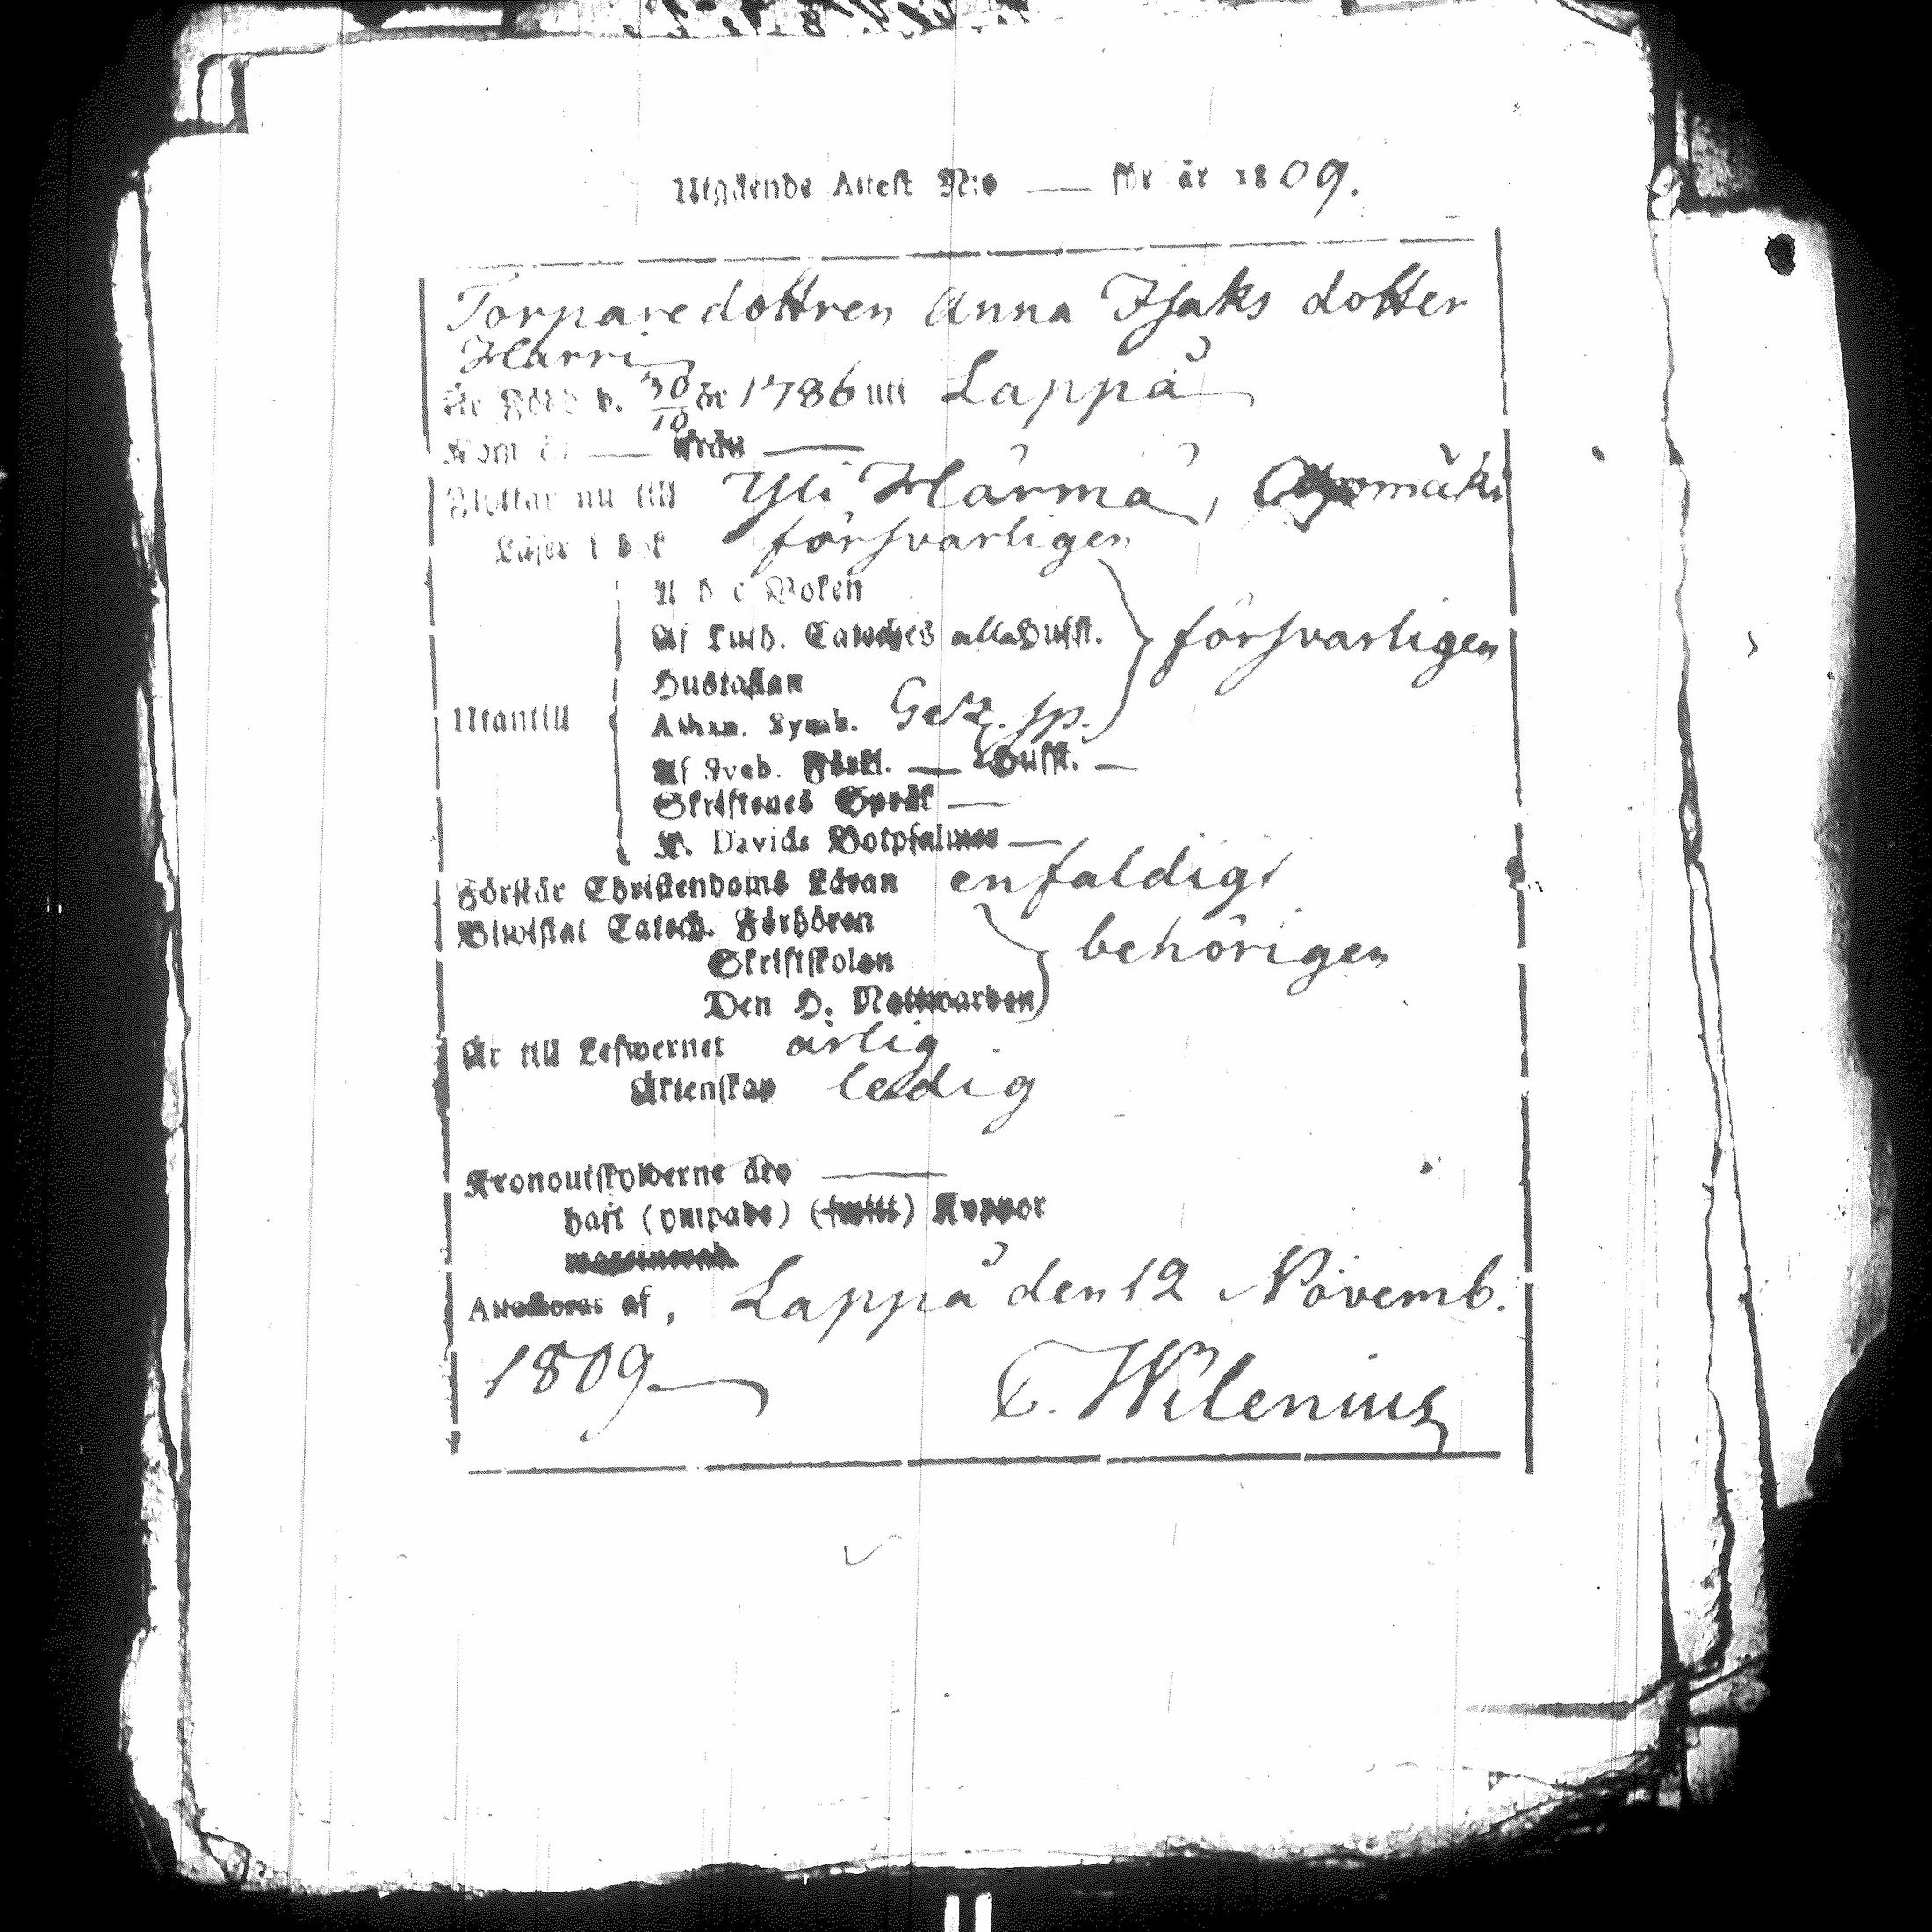 Utgående Attest N:o — för år 1809.
Torparedottren Anna Isaks dotter
Harri
Är Född d. 30/10 år 1786 uti Lappå
Kom år — från —
Flyttar nu till Yli Härmä,
Läser i bok försvarligen
A b c Boken
Af Luth. Cateches alla Hufst.
försvarligen
Hustaflan
Utantill
Athan. Symb. Getz. sp.
Af Sveb. Förkl. — Hufst. —
Skriftenes Språk —
K. Davids Botpsalmer —
Förstår Christendoms Läran enfaldigt
Biwistat Catech. Förhören
behörigen
Skriftskolan
Den H. Nattwarden
Är till Lefwernet ärlig
Äktenskap ledig
Kronoutskylderne dro —
haft (vnipabe) Koppor
Attesteras af, Lappå den 12 Novemb.
1809 C. Wilenius